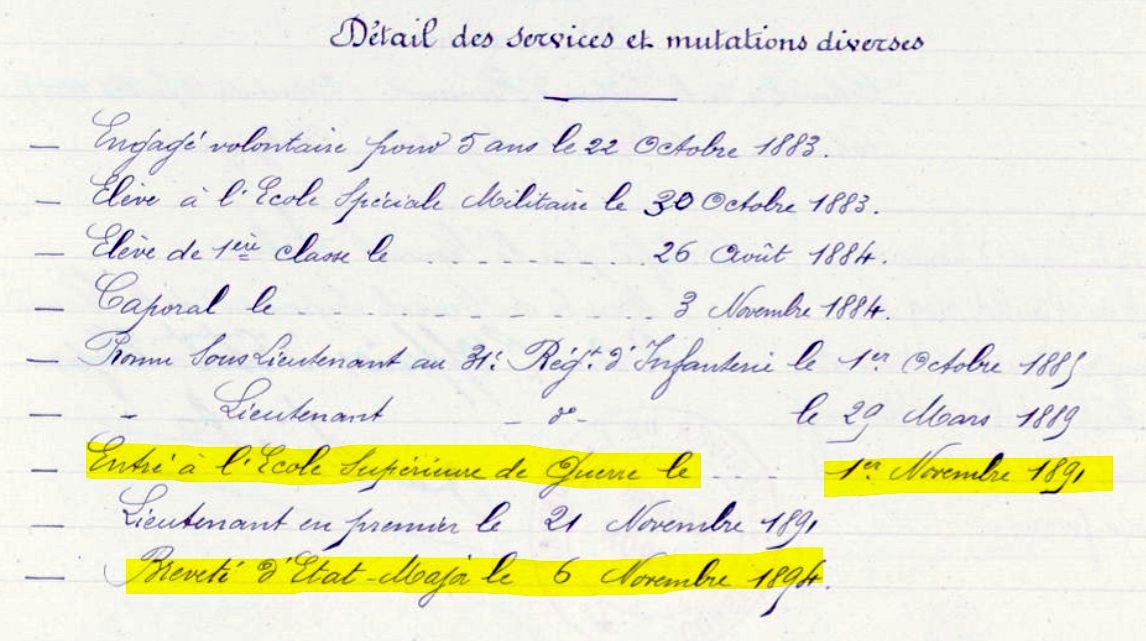 Détail des services et mutations diverses
— Engagé volontaire pour 5 ans le 22 Octobre 1883.
— Elève à l'Ecole Spéciale Militaire le 30 Octobre 1883.
— Elève de 1ère classe le . . . . . . . . . 26 Août 1884.
— Caporal le . . . . . . . . . . . . 3 Novembre 1884.
— Promu Sous Lieutenant au 31e Régt d'Infanterie le 1er Octobre 1885
— - Lieutenant - do - le 29 Mars 1889
— Entré à l'Ecole Supérieure de Guerre le . . . . 1er Novembre 1891
Lieutenant en premier le 21 Novembre 1891
— Breveté d'Etat-Major le 6 Novembre 1894.